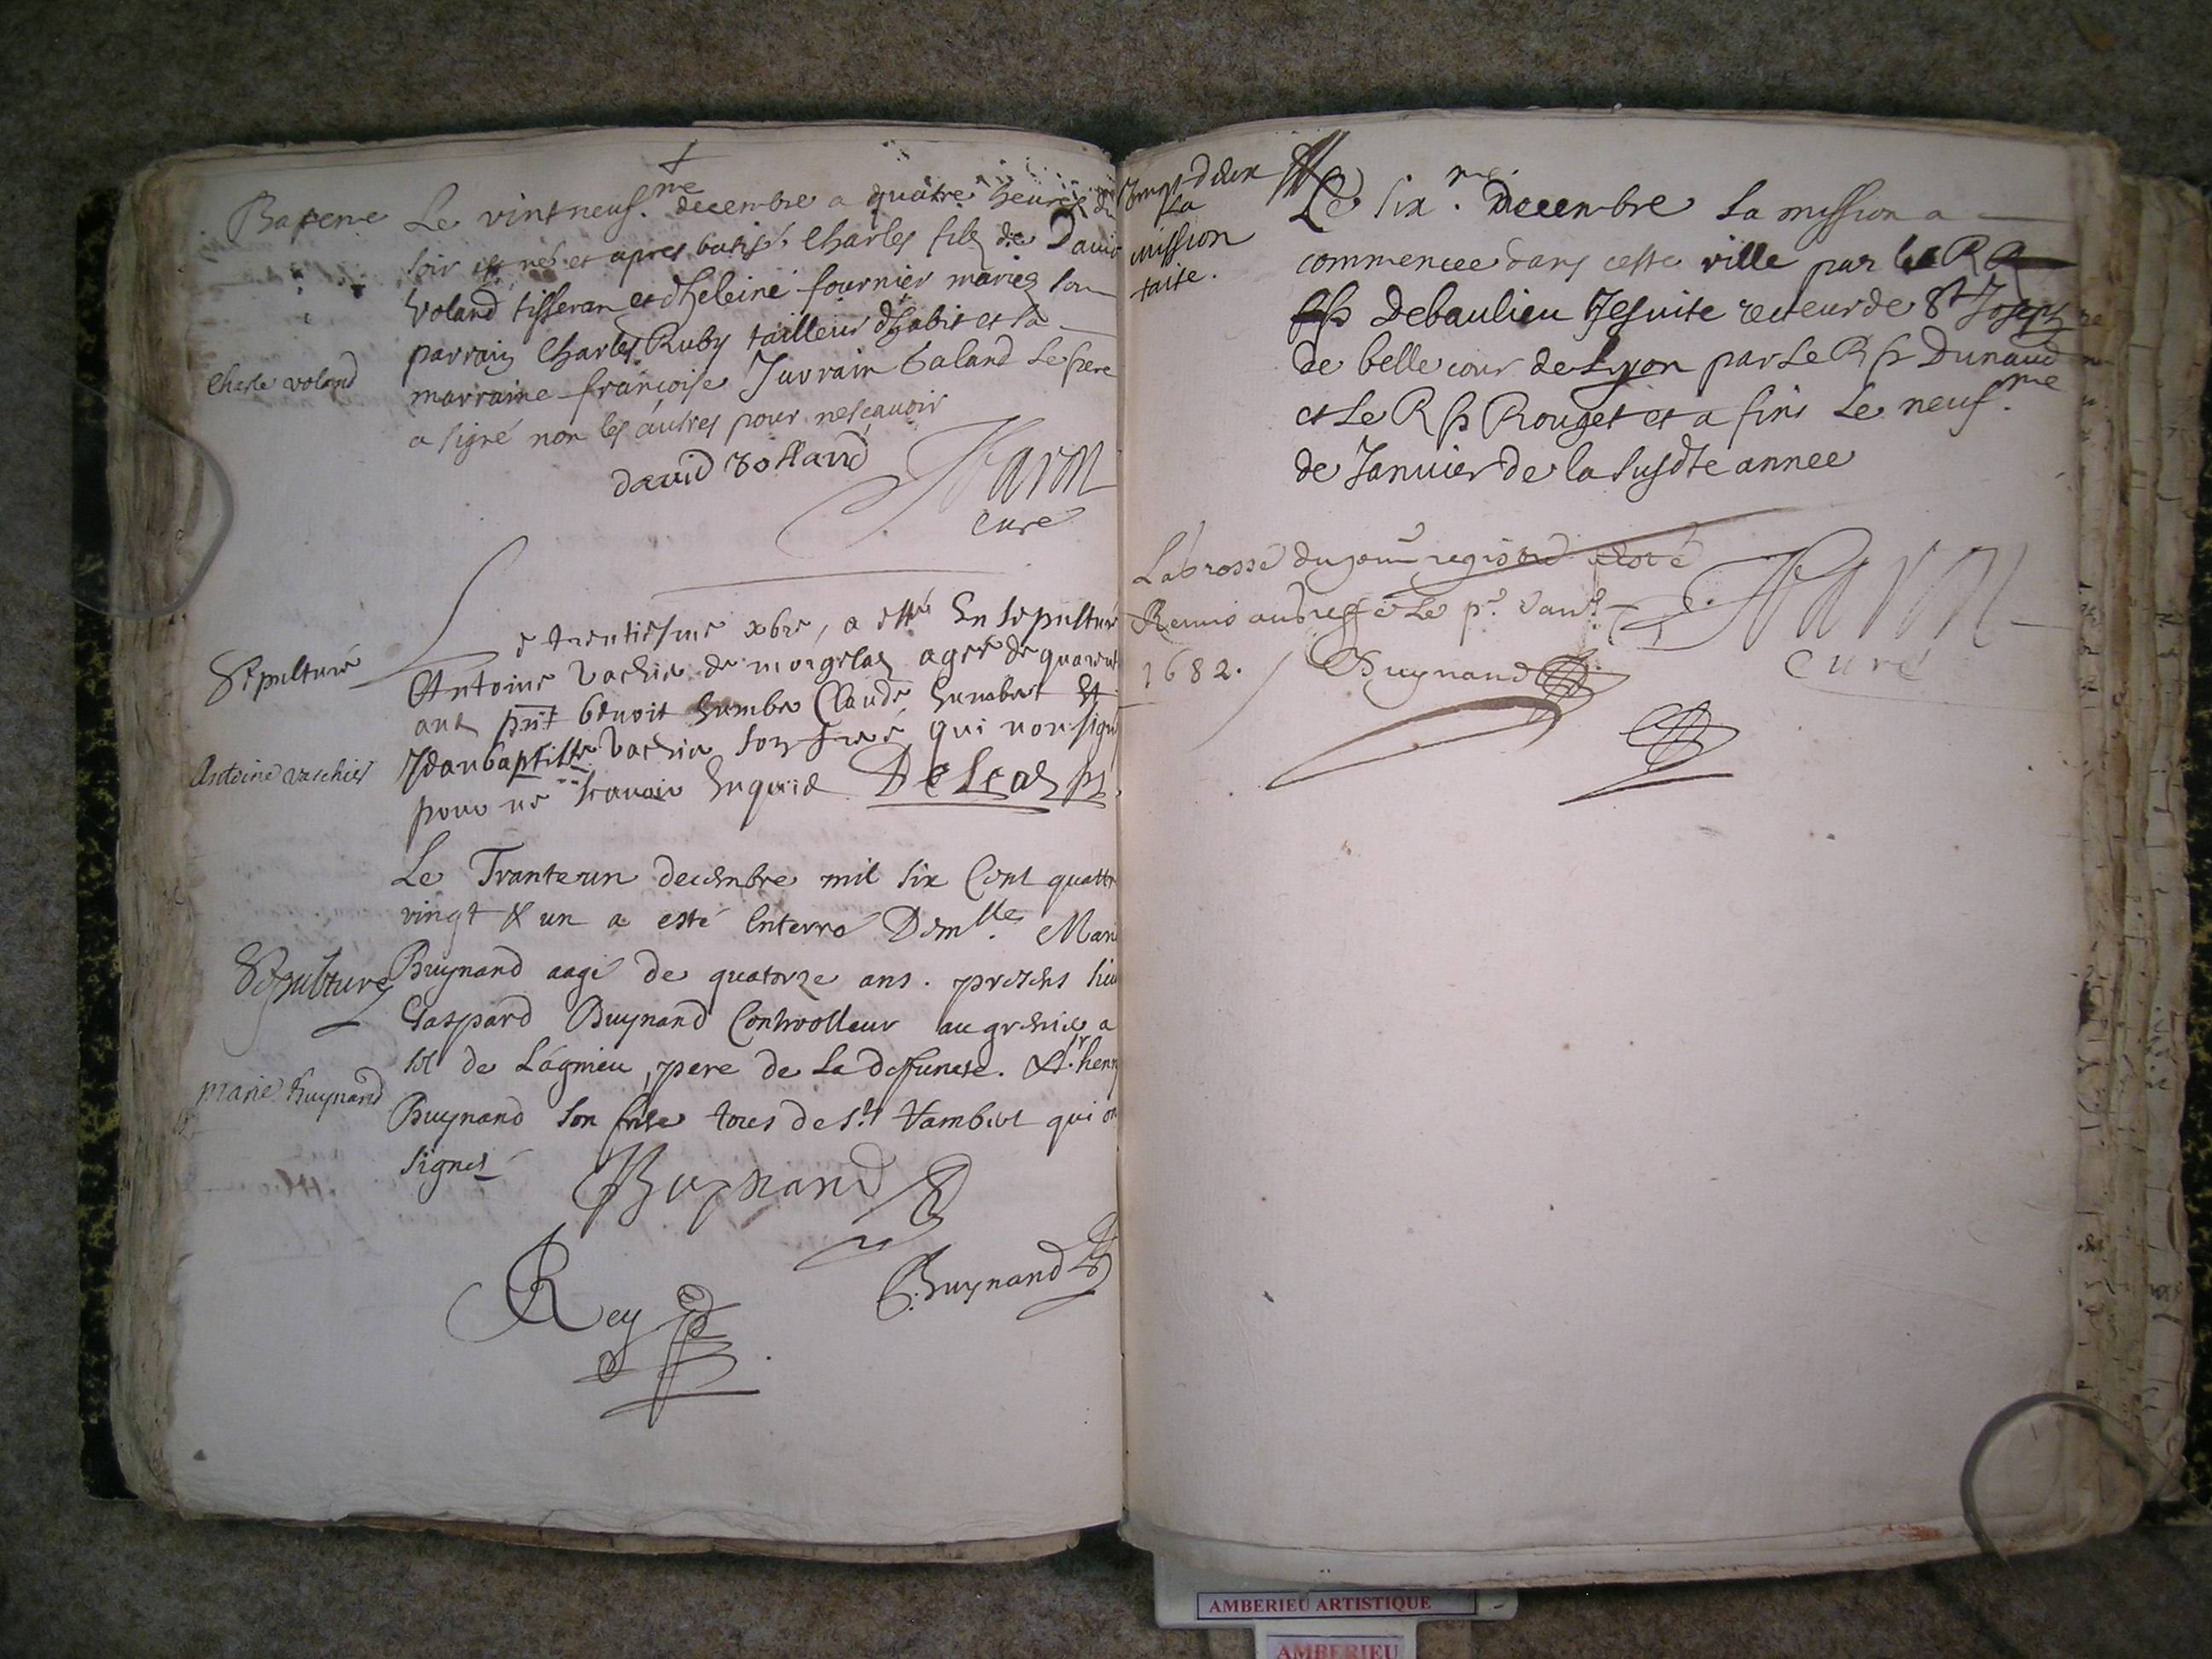 Bateme
Le vintneuf.me decembre a quatre heures du
soir est né et apres batisé Charles fils de David
Voland tisseran et dheleine fournier mariez son
parrain Charles Ruby tailleur dhabit et la
Charle voland
marraine françoise Juvrain Galand Le pere
a signé non les autres pour nesçavoir
david volland
curé
Sepulture
Le trentiesme xbre, a esté En sepulturé
Antoine Vachie de morgelas ageé de quarent
ans pnt benoit humber Claude humbert Et
Antoine vaschier
Jeanbaptiste Vachie son frere qui non signé
pour ne scavoir Enquis
Le Tranteun decembre mil six Cent quattre
vingt & un a esté Enterré Demlle. Marie
Sepulture
Buynand aagé de quatorze ans. presens sieur
Gaspard Buynand Controlleur au grenier a
sel de Lagnieu, pere de La deffuncte. & Sr. henry
marie buynand
Buynand son frere tous de St Rambert qui on
signes
Buynand
Buynand
Rey
La
mission
faite.
Le six.me Decembre la mission a
commencee dans cette ville par le R
Debaulieu Jesuite recteur de St Joseph
de belle cour de Lyon par Le R p Dunaud
et Le R p Rouget et a fini Le neuf.me
de Janvier de la susdte annee
Remis au greffe Le pr. Janv.
1682.
Buynand
curé
AMBERIEU ARTISTIQUE
AMBERIEU